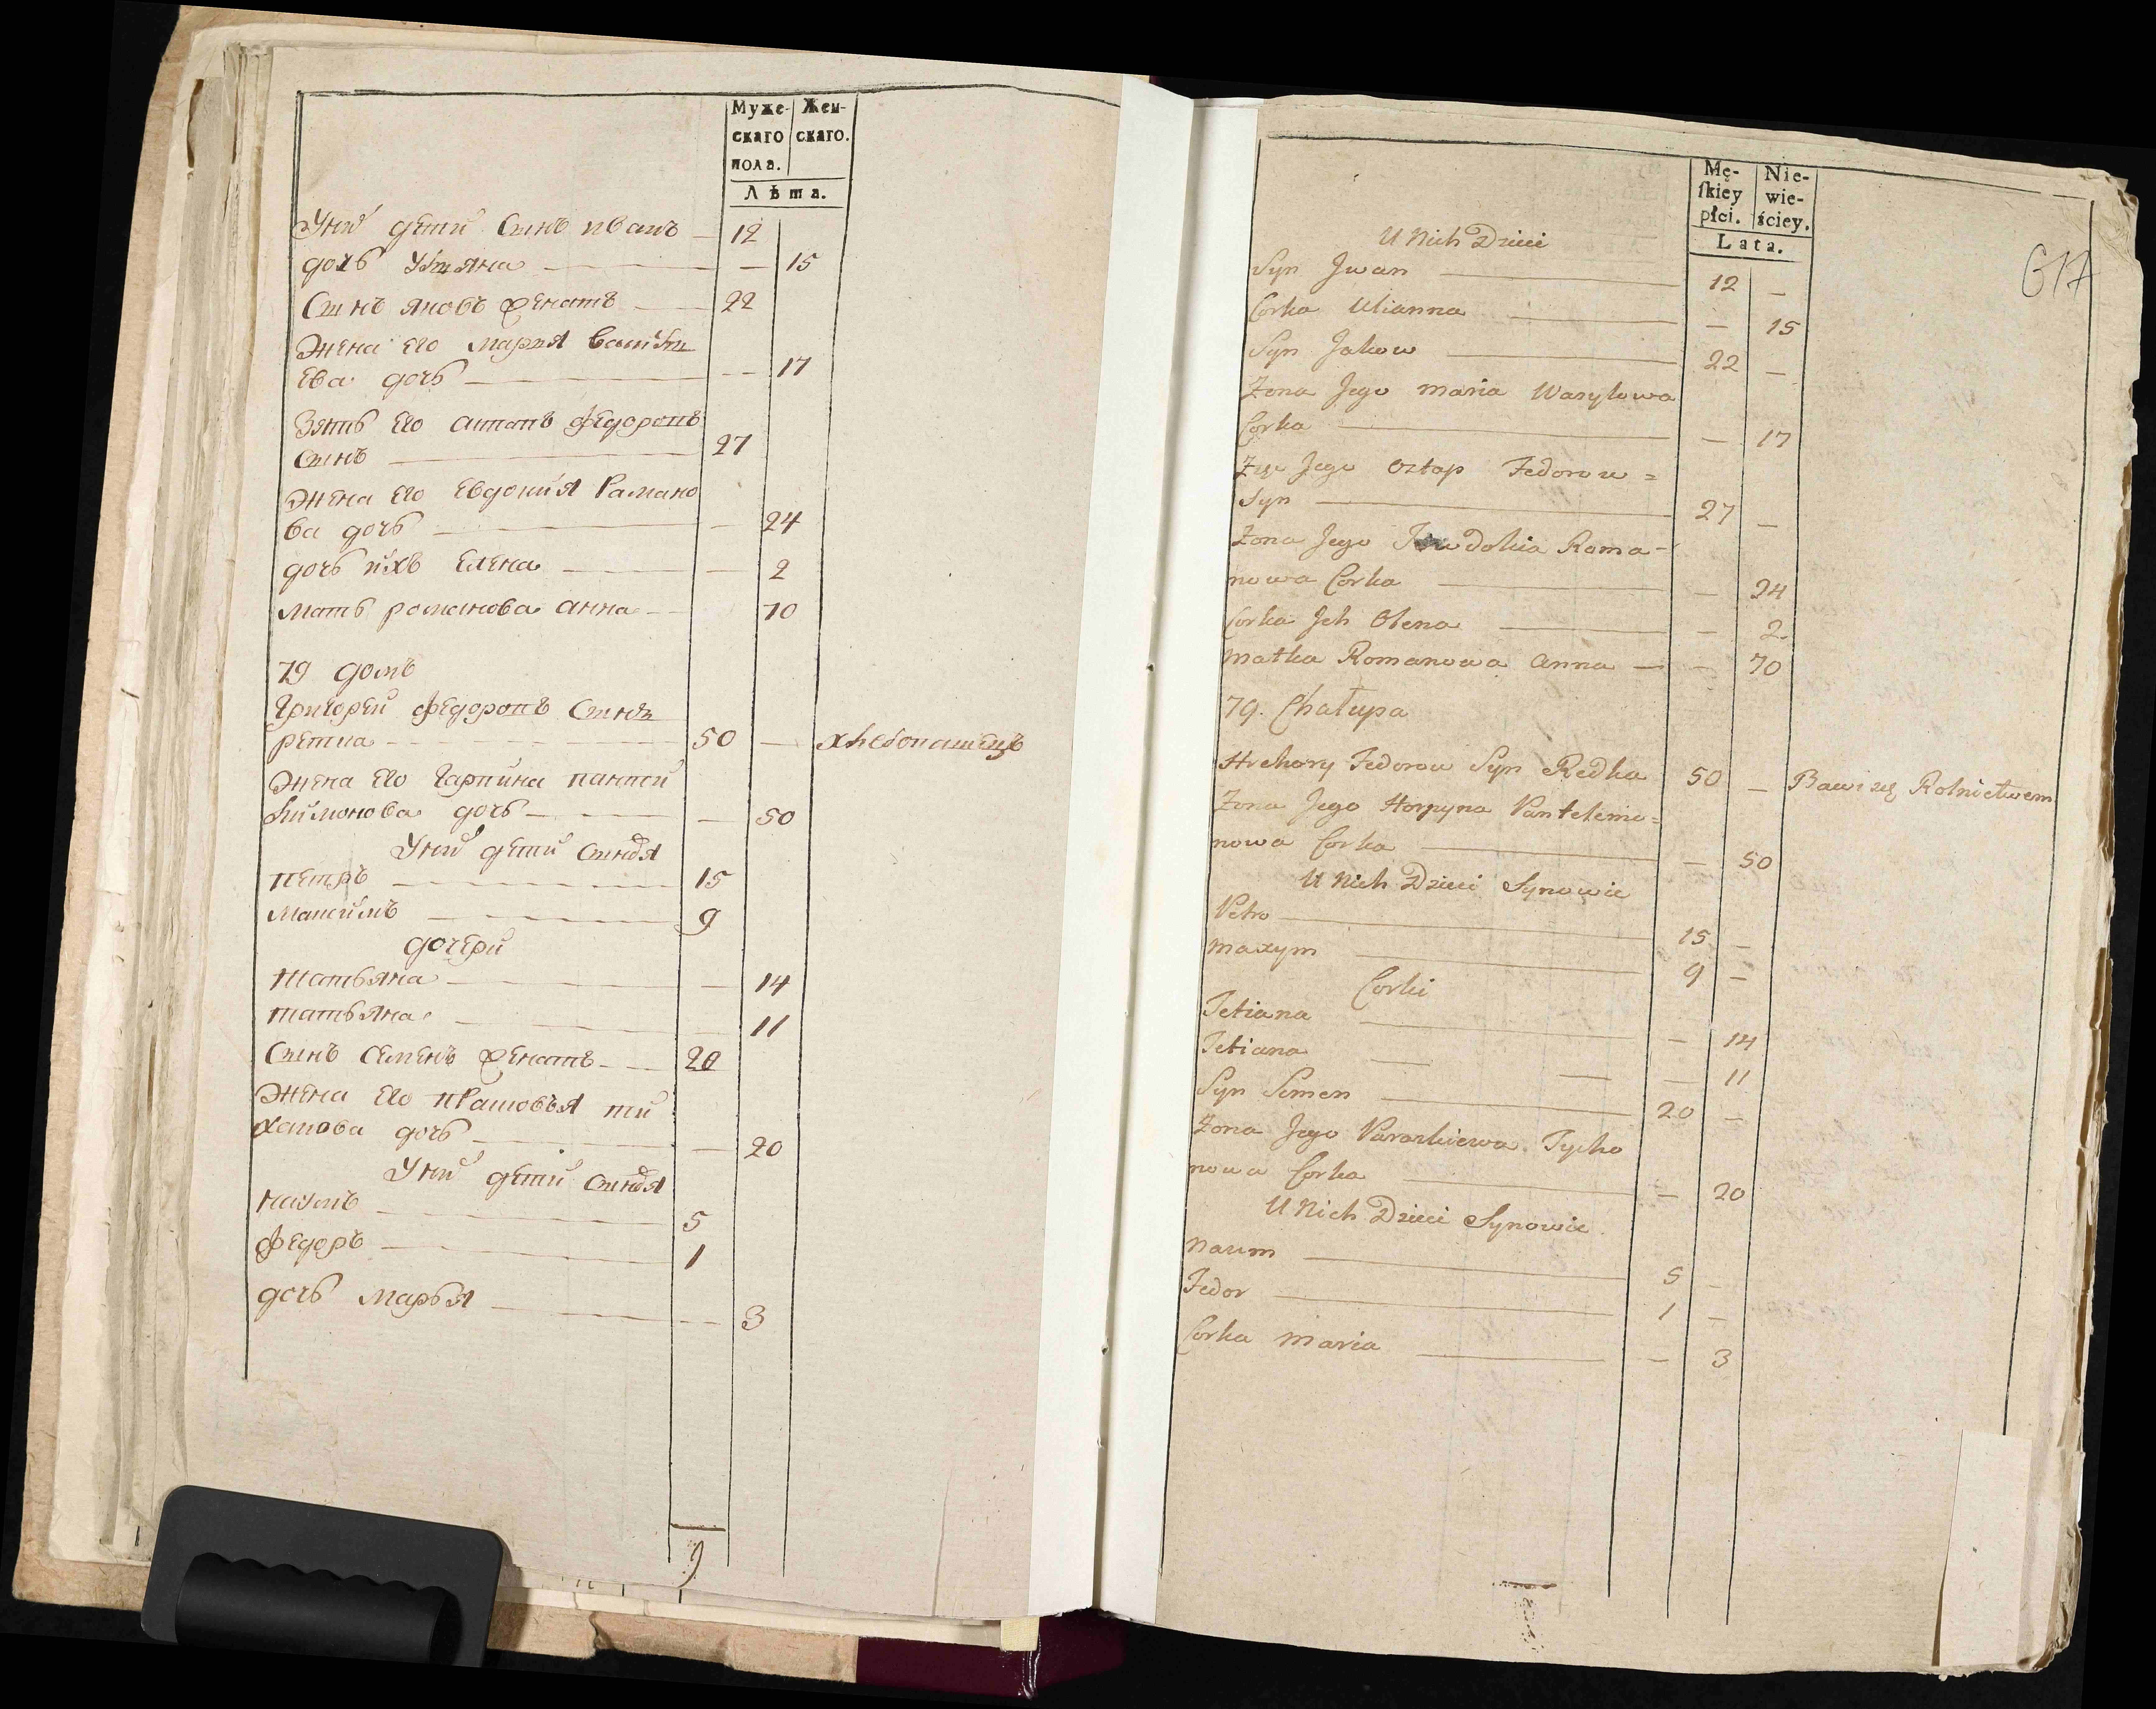 Муже-
скаго
пола.
Жен-
скаго.
Лѣта.
У нихъ дети Сынъ иванъ — 12
дочь Ульяна — — 15
Сынъ яковъ женатъ — 22
Жена его мария васильи
ева дочь — — 17
Зять его астапъ федоровъ
сынъ — 27
Жена его евдокия Рамано
ва дочь — — 24
дочь ихъ елена — — 2
мать романова анна — 70
79 домъ
Григорей федоровъ Сынъ
ретка — 50 — хлебопашецъ
Жена его гарпина пантей
лимонова дочь — — 50
У нихъ дети сыновья
петръ — 15
Максимъ — 9
дочери
татьяна — — 14
татьяна — — 11
Сынъ семенъ женатъ — 20
Жена его прасковья ти
ханова дочь — — 20
У нихъ дети сыновья
наумъ — 5
федоръ — 1
дочь марья — — 3
9
Mę-
ſkiey
płci.
Nie-
wie-
ściey.
Lata.
617
U Nich Dzieci
Syn Jwan — 12 —
Corka Ulianna — — 15
Syn Jakow — 22 —
Zona Jego Maria Wasylowa
Corka — — 17
Zięć Jego Ostap Fedorow =
Syn — 27 —
Zona Jego Jewdokia Roma-
nowa Corka — — 24
Corka Jch Olena — — 2
Matka Romanowa Anna — — 70
79. Chałupa
Hrehory Fedorow Syn Redka 50 — Bawi się Rolnictwem
Zona Jego Horpyna Pantelimo=
nowa Corka — — 50
U Nich Dzieci Synowie
Petro — 15 —
Maxym — 9 —
Corki
Tetiana — — 14
Tetiana — — — 11
Syn Semen — 20 —
Zona Jego Paraskiewa Tycho
nowa Corka — — 20
U Nich Dzieci Synowie
Naum — 5 —
Fedor — 1 —
Corka Maria — — 3